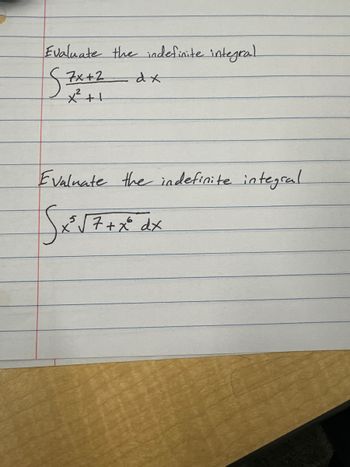 Evaluate the indefinite integral
∫ (7x+2)/(x²+1) dx
Evaluate the indefinite integral
∫x⁵√(7+x⁶) dx